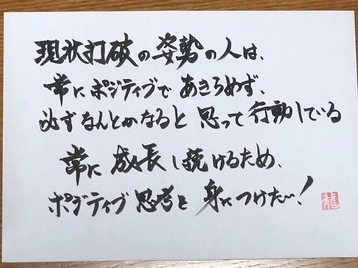 現状打破の姿勢の人は、
常にポジティブであきらめず、
必ずなんとかなると思って行動している
常に成長し続けるため、
ポジティブ思考を身につけたい!
龍